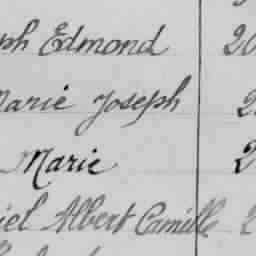 ph Edmond 20
Marie Joseph 2
Marie 2
iel Albert Camille 2